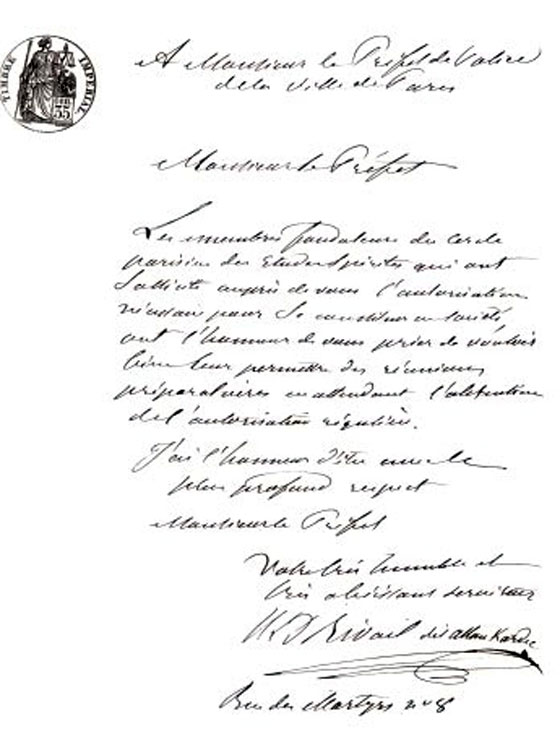 TIMBRE IMPERIAL
35
A Monsieur le Préfet de Police
de la Ville de Paris
Monsieur le Préfet
Les membres fondateurs du Cercle
parisien des Etudes Spirites qui ont
sollicité auprès de vous l'autorisation
nécessaire pour se constituer en société
ont l'honneur de vous prier de vouloir
bien leur permettre des réunions
préparatoires en attendant l'obtention
de l'autorisation régulière.
J'ai l'honneur d'être avec le
plus profond respect
Monsieur le Préfet
Votre très humble et
très obéissant serviteur
H L D Rivail dit Allan Kardec
Rue des Martyrs n° 8